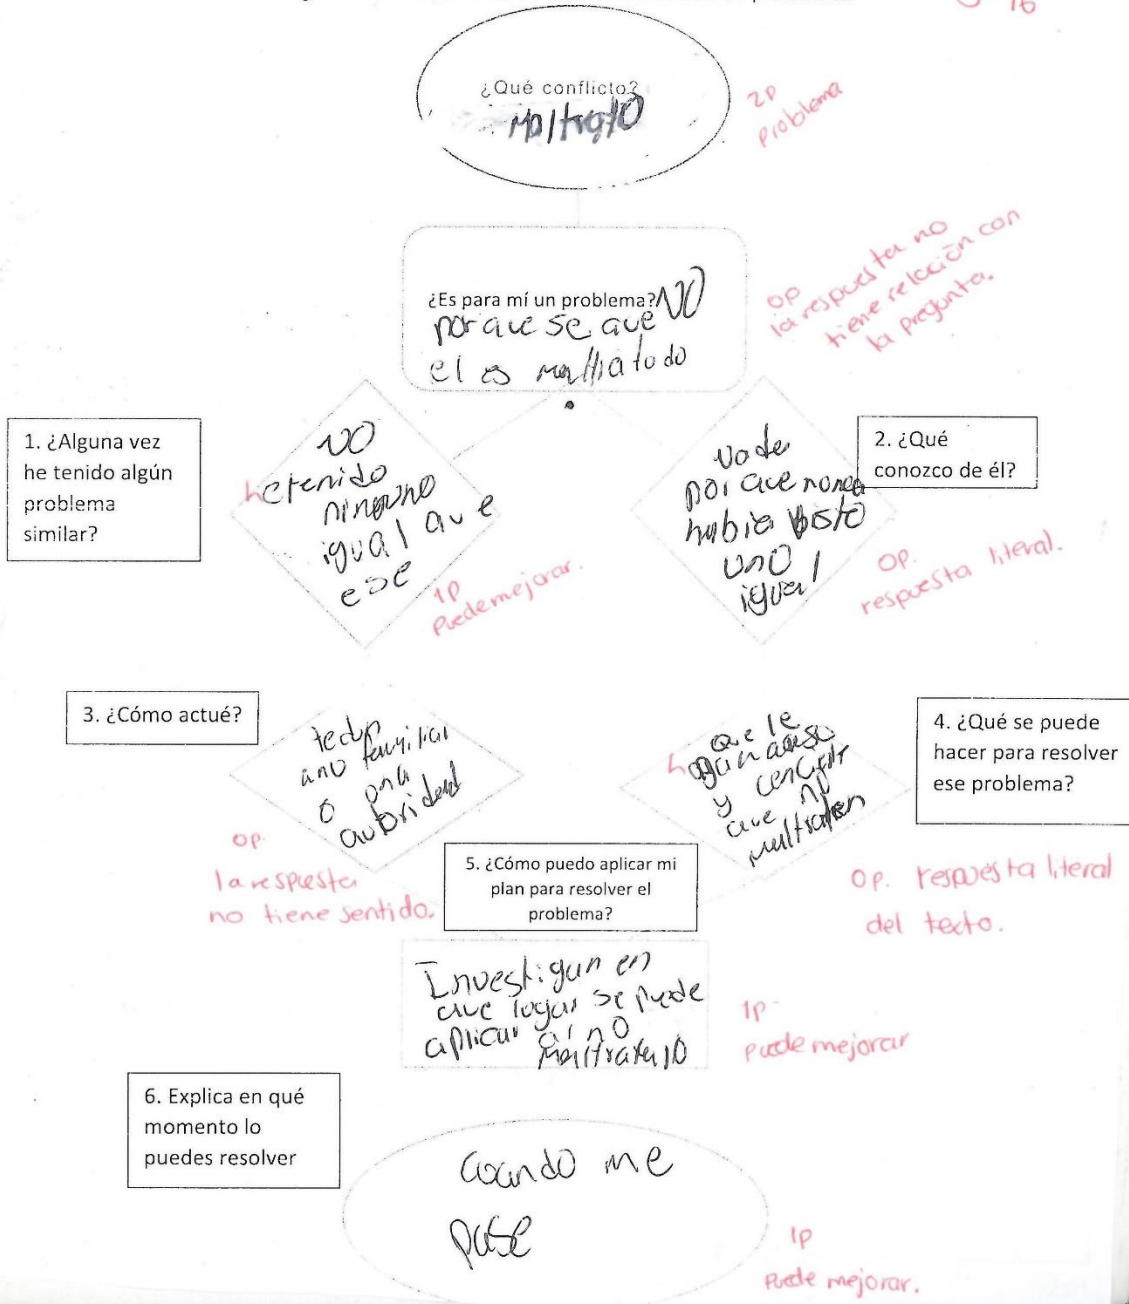 16
¿Qué conflicto?
Maltrato
2P
problema
¿Es para mí un problema? NO
por que se que NO
el es maltratado
0P
la respuesta no
tiene relación con
la pregunta.
1. ¿Alguna vez
he tenido algún
problema
similar?
NO
hetenido
ninguno
igual que
ese
1P
Puede mejorar.
2. ¿Qué
conozco de él?
por que nonca
habia visto
uno
igual
0P.
respuesta literal.
3. ¿Cómo actué?
familiar
o una
autoridad
0P.
la respuesta
no tiene sentido.
4. ¿Qué se puede
hacer para resolver
ese problema?
que le
hagan caso
y
que no
maltraten
0P. respuesta literal
del texto.
5. ¿Cómo puedo aplicar mi
plan para resolver el
problema?
Investigan en
que logar se puede
aplicar al no
1P
puede mejorar
6. Explica en qué
momento lo
puedes resolver
Cuando me
pase
1P
Puede mejorar.